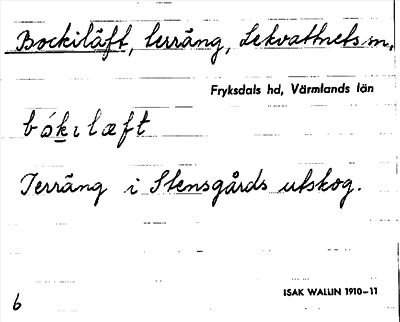 Bockiläft, terräng, Lekvattnets sn,
Fryksdals hd, Värmlands län
bók ılæft
Terräng i Stensgårds utskog.
ISAK WALLIN 1910–11
6